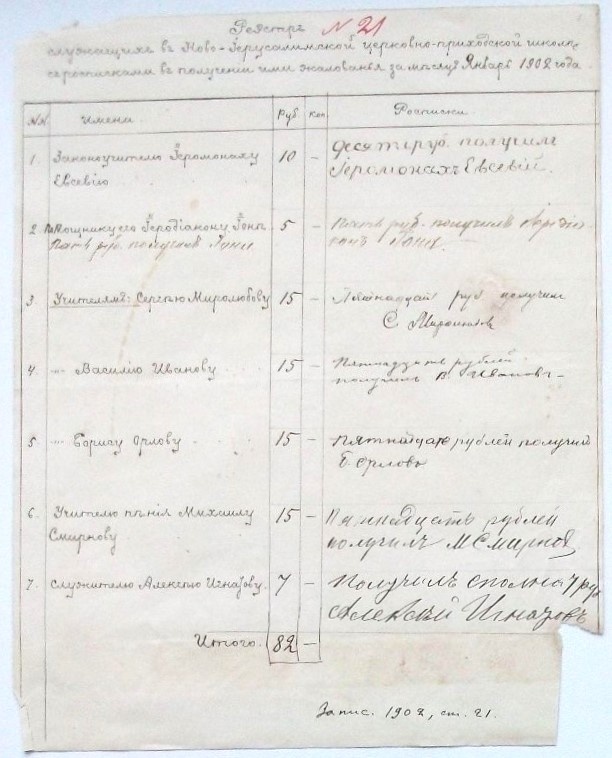 Реестръ № 21
служащихъ въ Ново-Іерусалимской церковно-приходской школѣ
съ росписками въ полученіи ими жалованья за мѣсяцъ Январь 1902 года.
№№ Имена Руб. Коп. Росписки
1. Законоучителю Іеромонаху Евсевію 10 — Десять руб. получилъ Іеромонахъ Евсевій.
2. Помощнику его Іеродіакону 5 — Пять руб. получилъ
Пять руб. получилъ
3 Учителямъ: Сергѣю Миролюбову 15 — Пятнадцать руб получилъ
С Миролюбовъ
4. —"— Василію Иванову 15 — Пятнадцать рублей
получилъ В. Ивановъ
5 —"— Борису Орлову 15 — Пятнадцать рублей получилъ
Б Орловъ
6. Учителю пѣнія Михаилу Смирнову 15 — Пятнадцать рублей
получилъ М Смирновъ
7. Служителю Алексѣю Игнатову. 7 — Получилъ сполна 7 ру
Алексѣй Игнатовъ
Итого. 82 —
Запис. 1902, ст. 21.